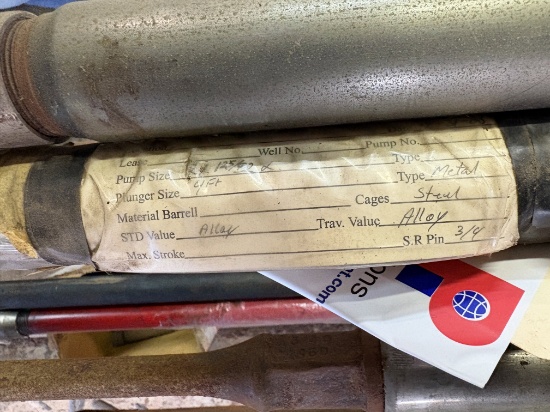 Lease Well No. Pump No.
Pump Size Type
Plunger Size 4 Ft Type Metal
Material Barrell Cages Steel
STD Value Alloy Trav. Value Alloy
Max. Stroke S.R Pin 3/4
ons
t.com